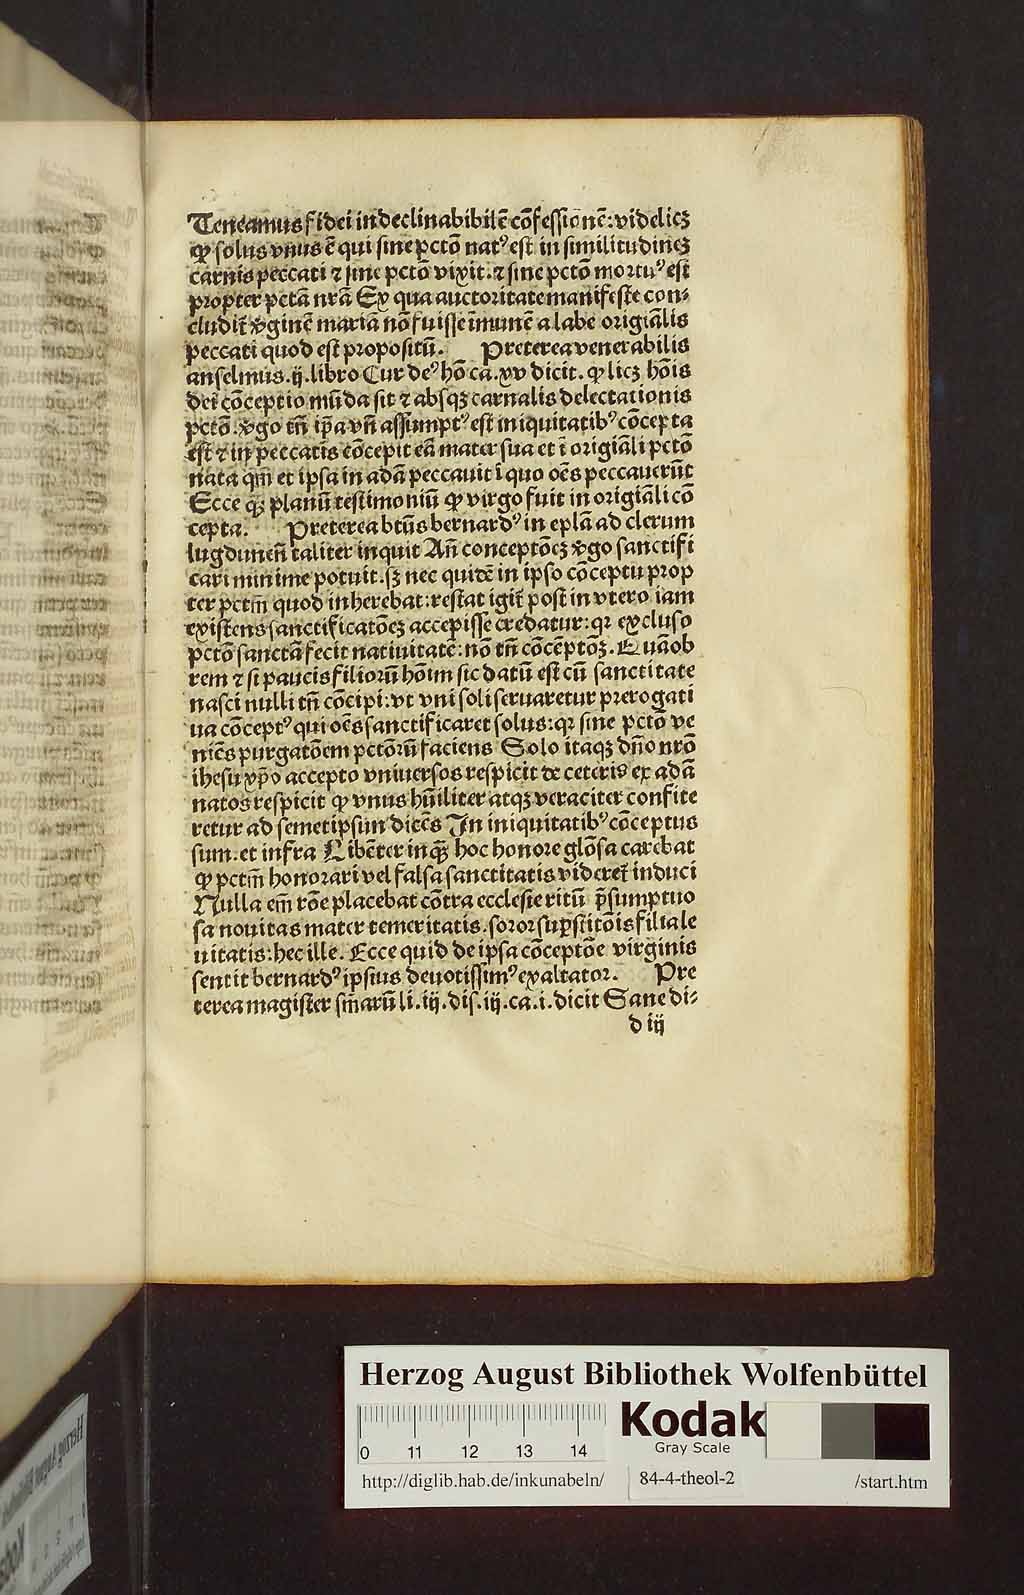 Teneamus fidei indeclinabibilē cōfessionē: videlicꝫ
ꝙ solus vnus ē qui sine pctō natꝰ est in similitudineꝫ
carnis peccati ⁊ sine pctō vixit: ⁊ sine pctō mortuꝰ est
propter pctā nrā Ex qua auctoritate manifeste con⸗
cludit̄ v̄ginē mariā nō fuisse īmunē a labe origiālis
peccati quod est propositū. Preterea venerabilis
anselmus .ij. libro Cur deꝰ hō ca. xv dicit. ꝙ licꝫ hōis
dei cōceptio mūda sit ⁊ absqꝫ carnalis delectationis
pctō. v̄go tn̄ ip̄a vn̄ assumptꝰ est iniquitatibꝰ cōcepta
est ⁊ in peccatis cōcepit eā mater sua et ī origiāli pctō
nata qm̄ et ipsa in adā peccauit ī quo oēs peccauerūt
Ecce qꝫ planū testimoniū ꝙ virgo fuit in origiāli cō
cepta. Preterea btūs bernardꝰ in eplā ad clerum
lugdunen̄ taliter inquit An̄ conceptōeꝫ v̄go sanctifi
cari minime potuit. sꝫ nec quidē in ipso cōceptu prop
ter pctm̄ quod inherebat: restat igit̄ post in vtero iam
existens sanctificatōeꝫ accepisse credatur: qꝛ excluso
pctō sanctā fecit natiuitatē: nō tn̄ cōceptōꝫ. Quāob
rem ⁊ si paucis filiorū hōim sic datū est cū sanctitate
nasci nulli tn̄ cōcipi: vt vni soli seruaretur prerogati
ua cōceptꝰ qui oēs sanctificaret solus: qꝛ sine pctō ve
niēs purgatōem pctōrū faciens Solo itaqꝫ dn̄o nrō
ihesu xp̄o accepto vniuersos respicit de ceteris ex adā
natos respicit ꝙ vnus hūiliter atqꝫ veraciter confite
retur ad semetipsun dicēs In iniquitatibꝰ cōceptus
sum. et infra Libēter inqꝫ hoc honore glōsa carebat
ꝙ pctm̄ honorari vel falsa sanctitatis videret̄ induci
Nulla em̄ rōe placebat cōtra ecclesie ritū p̄sumptuo
sa nouitas mater temeritatis. soror suꝑstitōis filia le
uitatis: hec ille. Ecce quid de ipsa cōceptōe virginis
sentit bernardꝰ ipsius deuotissimꝰ exaltator. Pre
terea magister sniarū li. iij. dis. iij. ca. i. dicit Sane di⸗
d iij
Herzog August Bibliothek Wolfenbüttel
0 11 12 13 14
Kodak
Gray Scale
http://diglib.hab.de/inkunabeln/ 84-4-theol-2 /start.htm